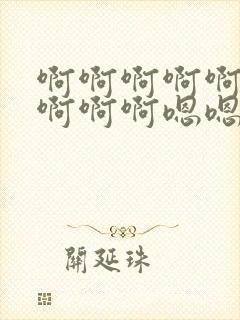 啊啊啊啊啊
啊啊啊嗯嗯
關延珠